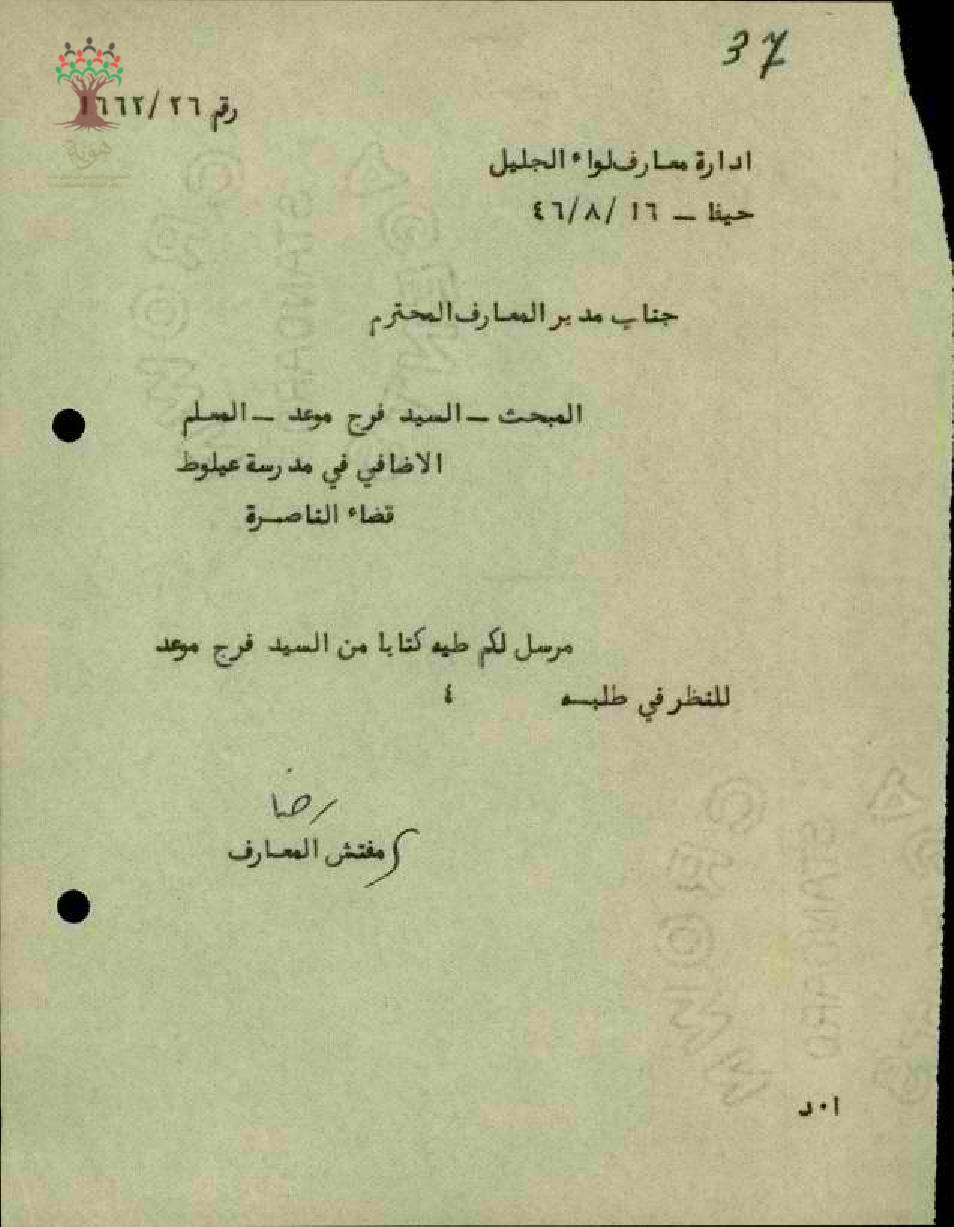 37
رقم ٢٦/ ١٦٦٢
هوية
ادارة معارف لواء الجليل
حيفا – ١٦ /٨/ ٤٦
جناب مدير المعارف المحترم
المبحث – السيد فرج موعد – المعلم
الاضافي في مدرسة عيلوط
قضاء الناصرة
مرسل لكم طيه كتابا من السيد فرج موعد
للنظر في طلبه ٤
رضا
مفتش المعارف
ا٠د